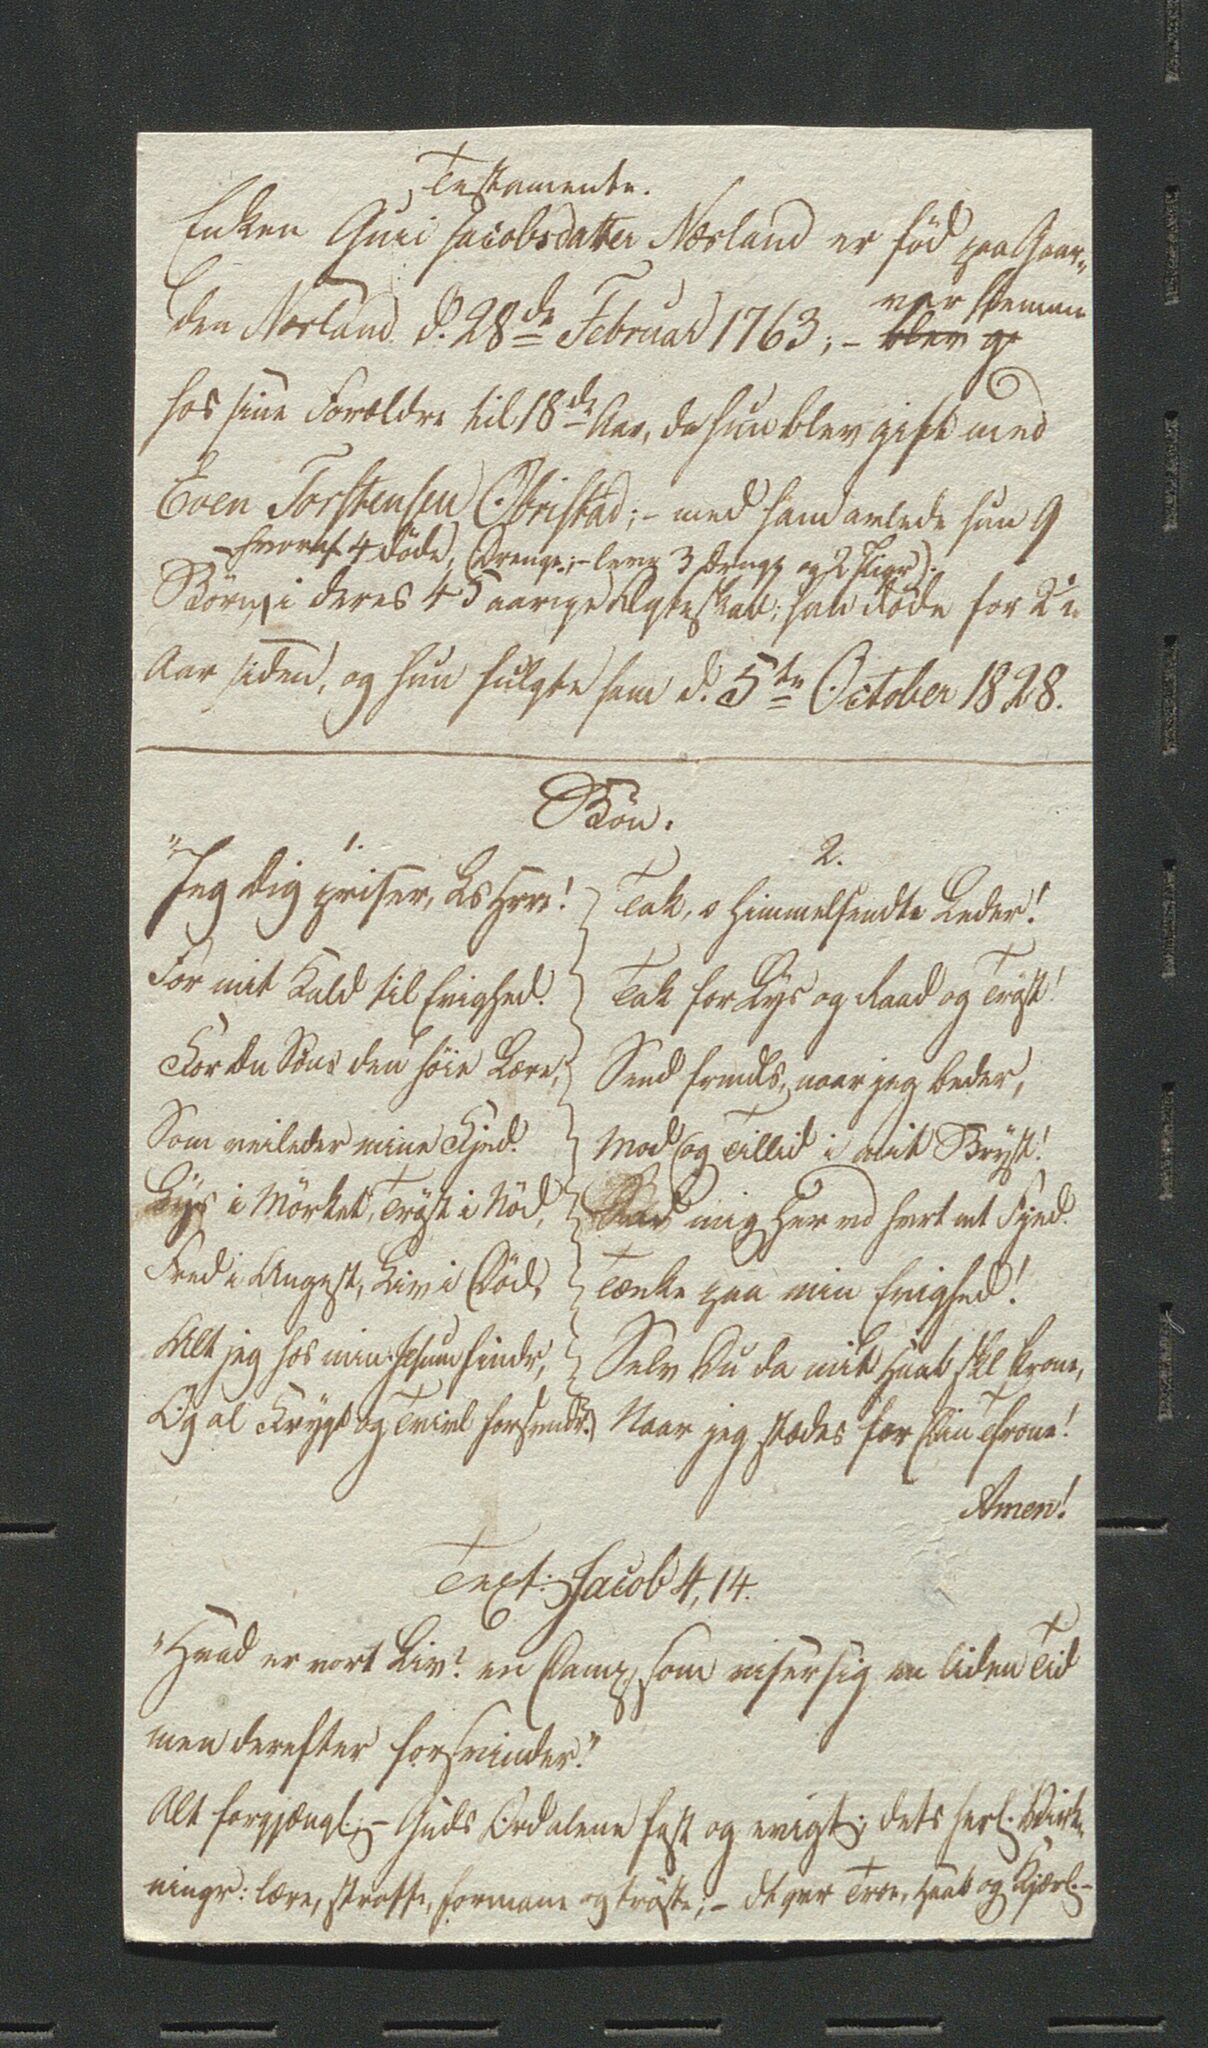 Testamente.
Enken Guri Jacobsdatter Nærland er föd paa Gaar-
den Nærland d. 28de Februar 1763; - blev g
var hiemme
hos sine Forældre til 18de Aar, da hun blev gift med
Even Torstensen Obrestad; - med ham avlede hun 9
hvoraf 4 döde, (Drenge; - leve 3 Drenge og 2 Piger).
Börn, i deres 45 aarige Ægteskab; han döde for 2
Aar siden, og hun fulgte ham d. 5te October 1828.
Bön.
1.
"Jeg dig priser, Ls Herre!
For mit Kald til Evighed.
For Du Söns den höie Lære,
Som veileder mine Fjed.
Lys i Mörket, Tröst i Nöd,
Fred i Angest, Liv i Död,
Alt jeg hos min Jesum findr,
Og al Frygt og Tvivl forsvndr.
2.
Tak, o Himmelsendte Leder!
Tak for Lys og Raad og Tröst!
Send fremdls, naar jeg beder,
Mod og Tillid i mit Bryst!
Lad mig her vd hvert et Fjed.
Tænke paa min Evighed!
Selv Du da mit Haab skl krone,
Naar jeg stædes for Din Throne!
Amen!
Text: Jacob 4, 14.
"Hvad er vort Liv? en Damp, som viser sig en liden Tid
men derefter forsvinder."
Alt forgjængl.; - Guds Ord alene fast og evigt; dets herl. Virk-
ningr: lære, straffe, formane og tröste; - dt gvr Troe, Haab og Kjærl.-